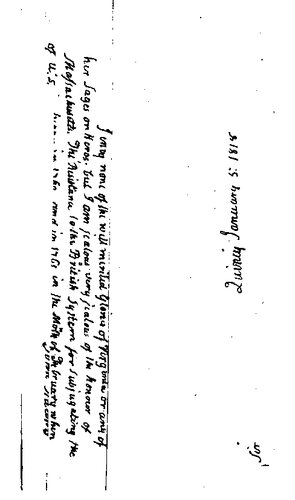 Quincy January 5: 1818
Sir
I envy none of the well merited glories of Virginia or any of
her Sages or Heroes. But I am jealous very jealous of the honour of
Massachusetts. The Resistance to the British System for Subjugating the
in 1760 and in 1761 in the Month of February when